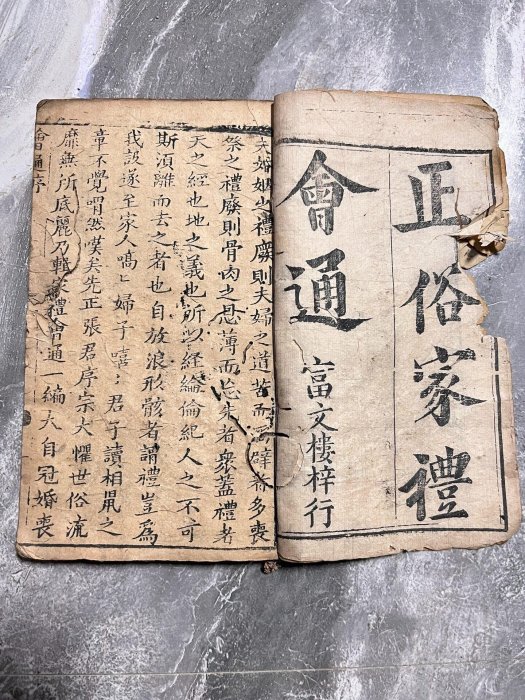 正俗家禮
會通
富文樓梓行
夫婚姻之禮廢則夫婦之道苦而淫辟者多喪
祭之禮廢則骨肉之恩薄而忘先者衆蓋禮者
天之經也地之義也所以経綸倫紀人之不可
斯湏離而去之者也自放浪形骸者謂禮豈為
我設遂至家人嗃〻婦子嘻〻君子讀相鼠之
章不覺喟然嘆矣先正張君序宗大懼世俗流
靡無所底麗乃輯家禮會通一編大自冠婚喪
會通序